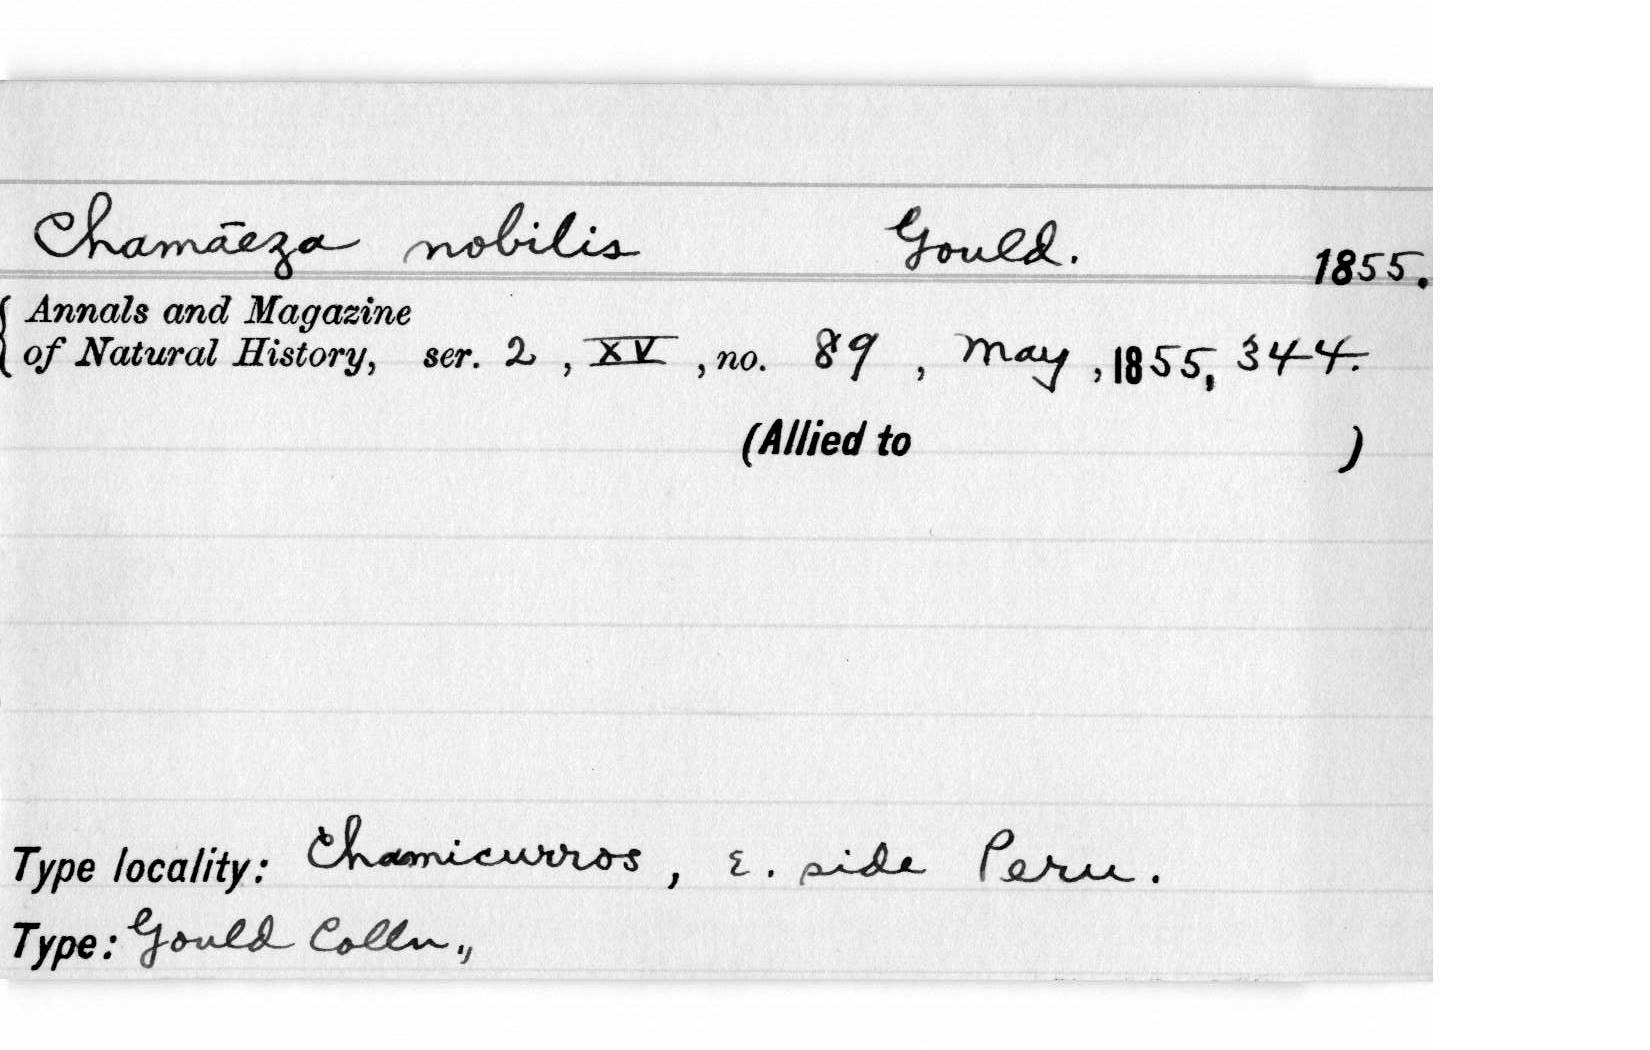 Chamāeza nobilis Gould. 1855.
Annals and Magazine
of Natural History, ser. 2, XV, no. 89, May, 1855, 344.
(Allied to )
Type locality: Chamicurros, E. side Peru.
Type: Gould Colln.,